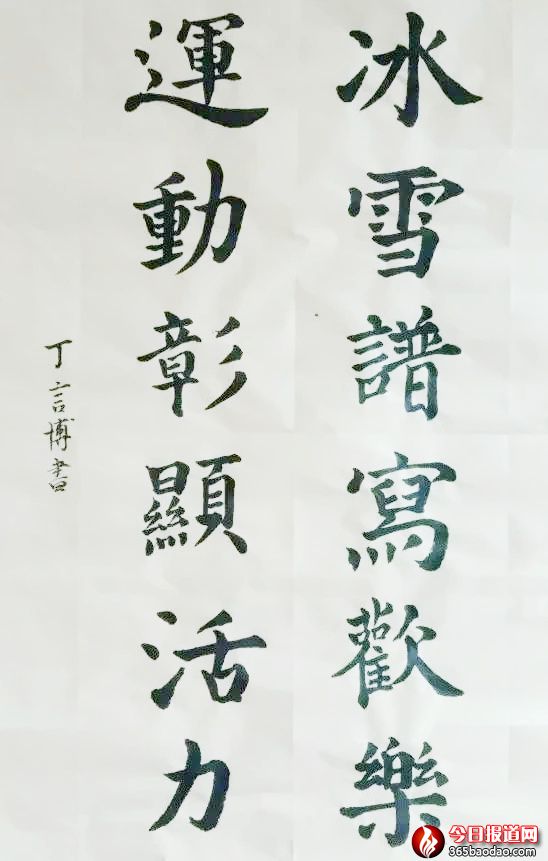 冰雪譜寫歡樂
運動彰顯活力
丁言博書
今日报道网
365baodao.com